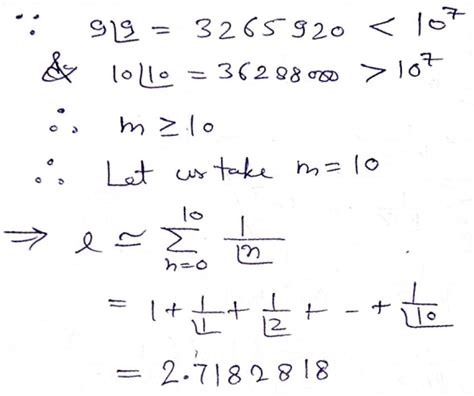 ∵ 9⌊9 = 3265920 < 10^7
& 10⌊10 = 36288000 > 10^7
∴ m ≥ 10
∴ Let us take m = 10
⇒ e ≃ ∑_{n=0}^{10} 1/⌊n
= 1 + 1/⌊1 + 1/⌊2 + - + 1/⌊10
= 2.7182818